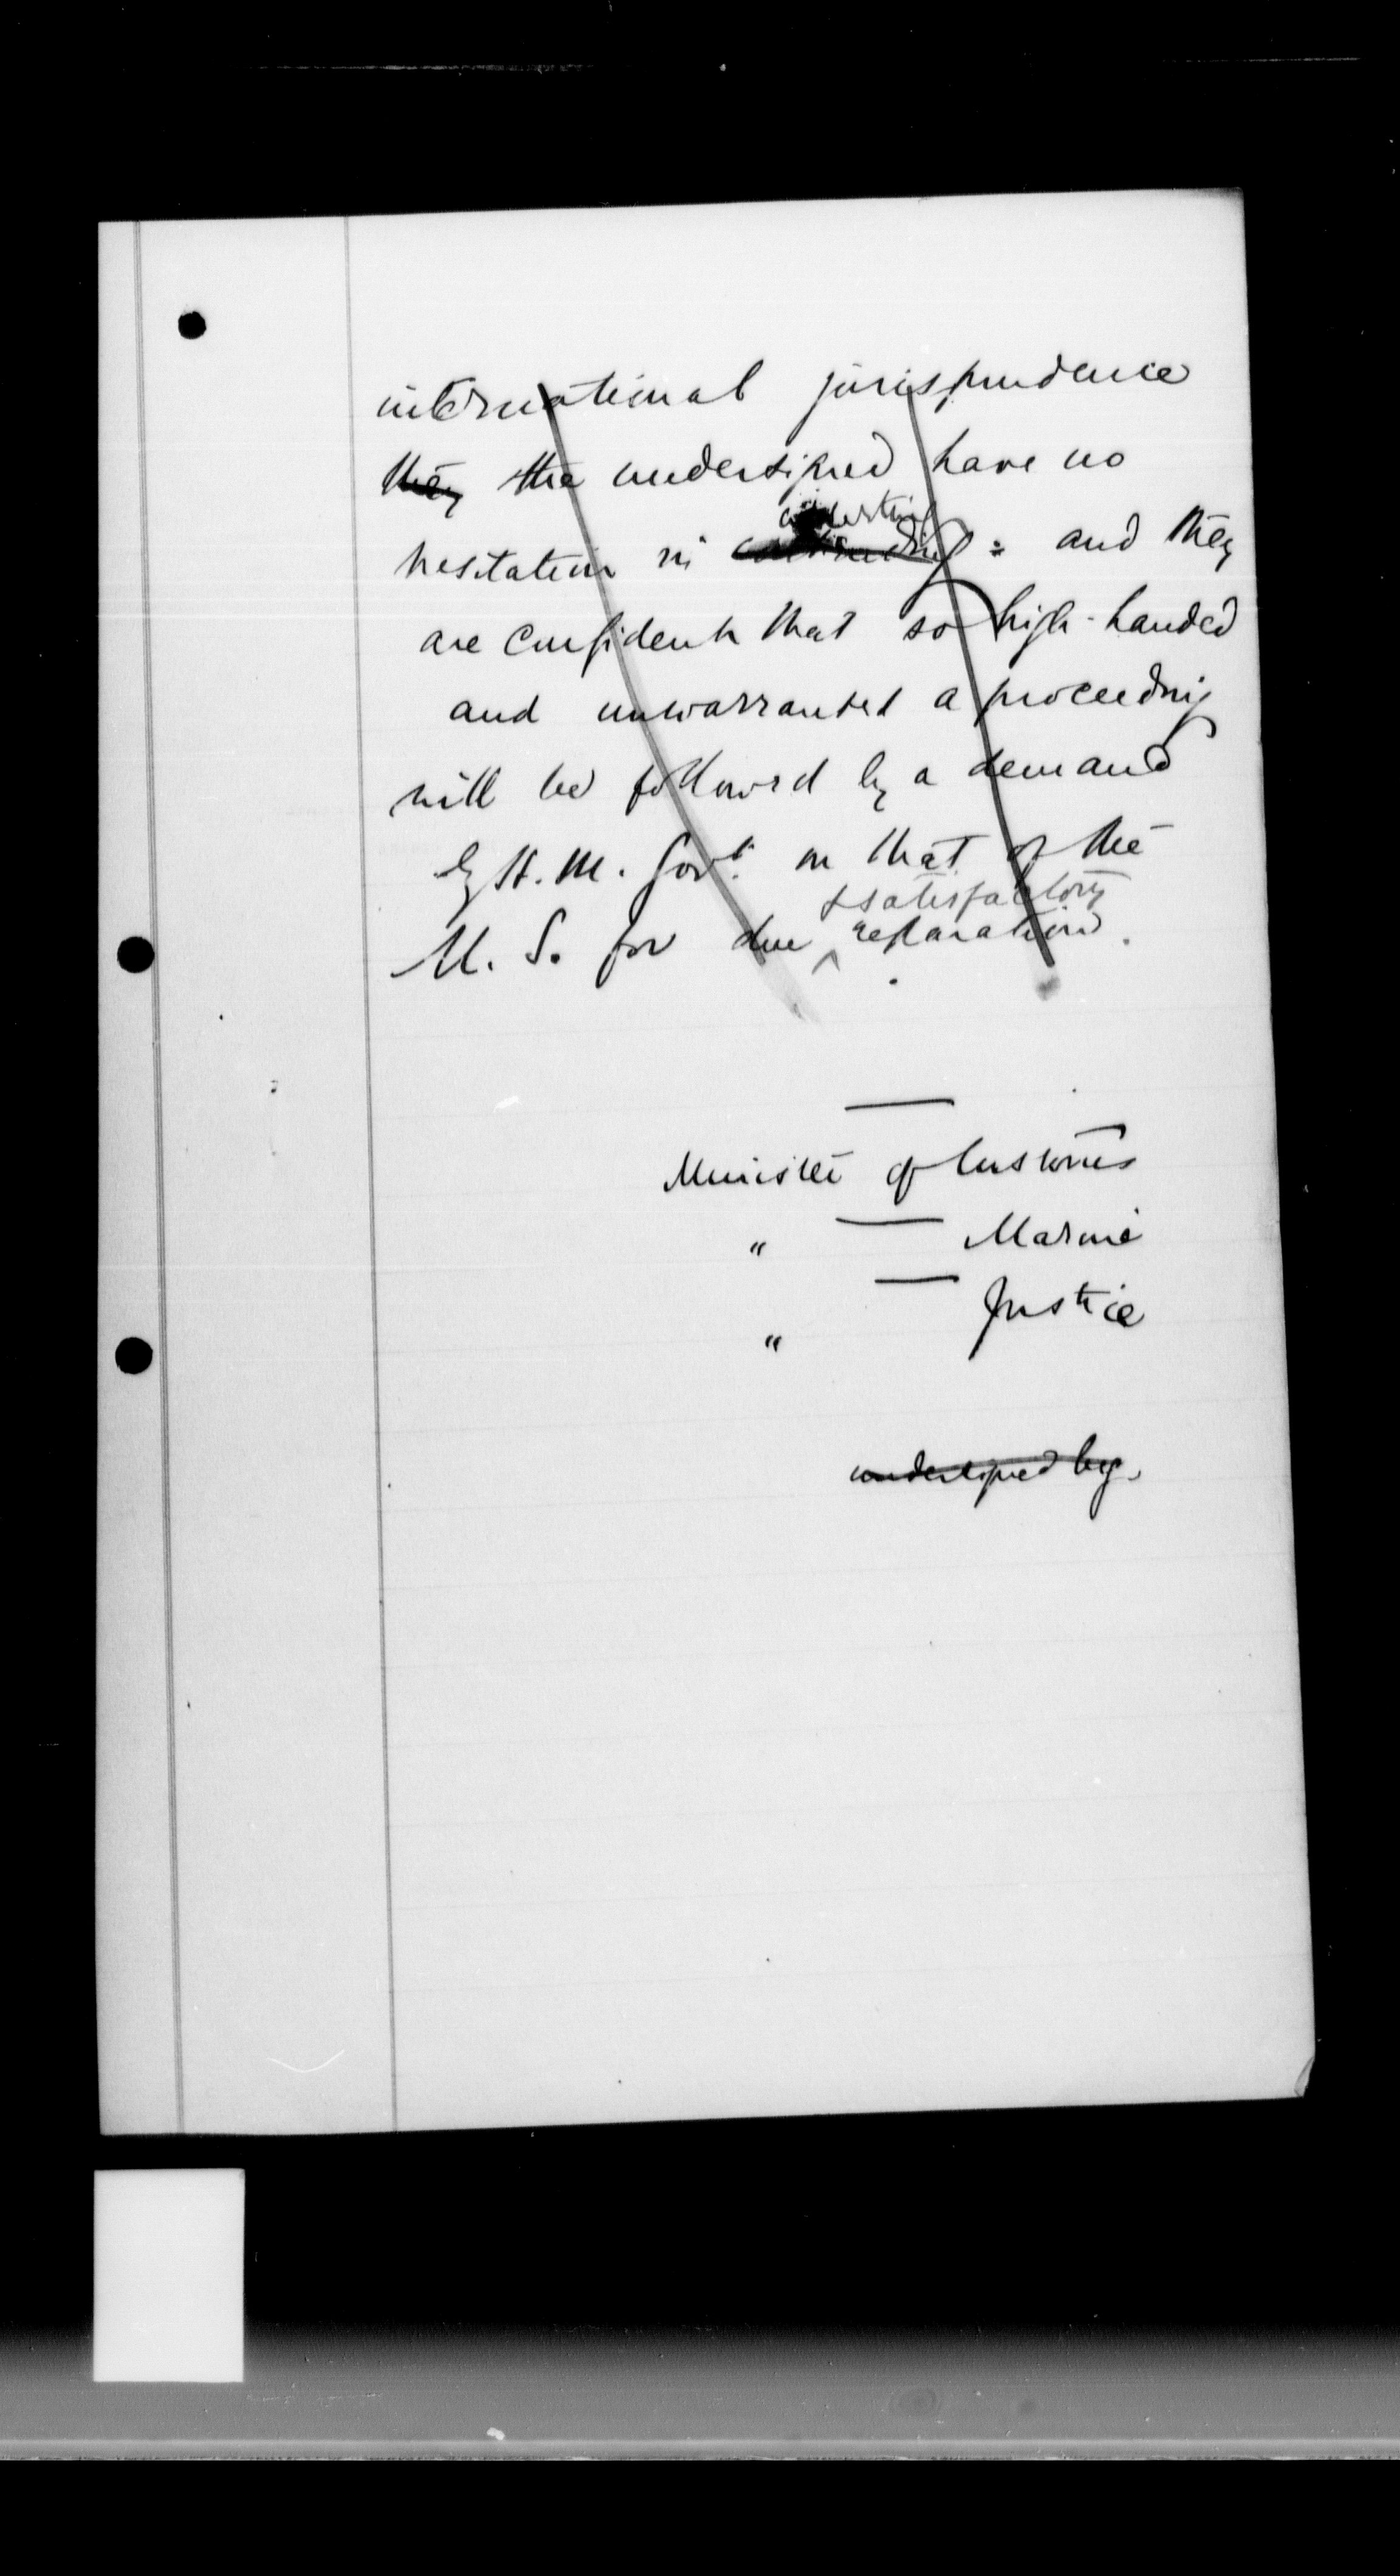 international jurisprudence
they the undersigned have no
hesitation in asserting : and they
are confident that so high-handed
and unwarranted a proceeding
will be followed by a demand
by H. M. Govt. on that of the
& satisfactory
U. S. for due reparation.
Minister of Customs
" Marine
" Justice
undersigned by